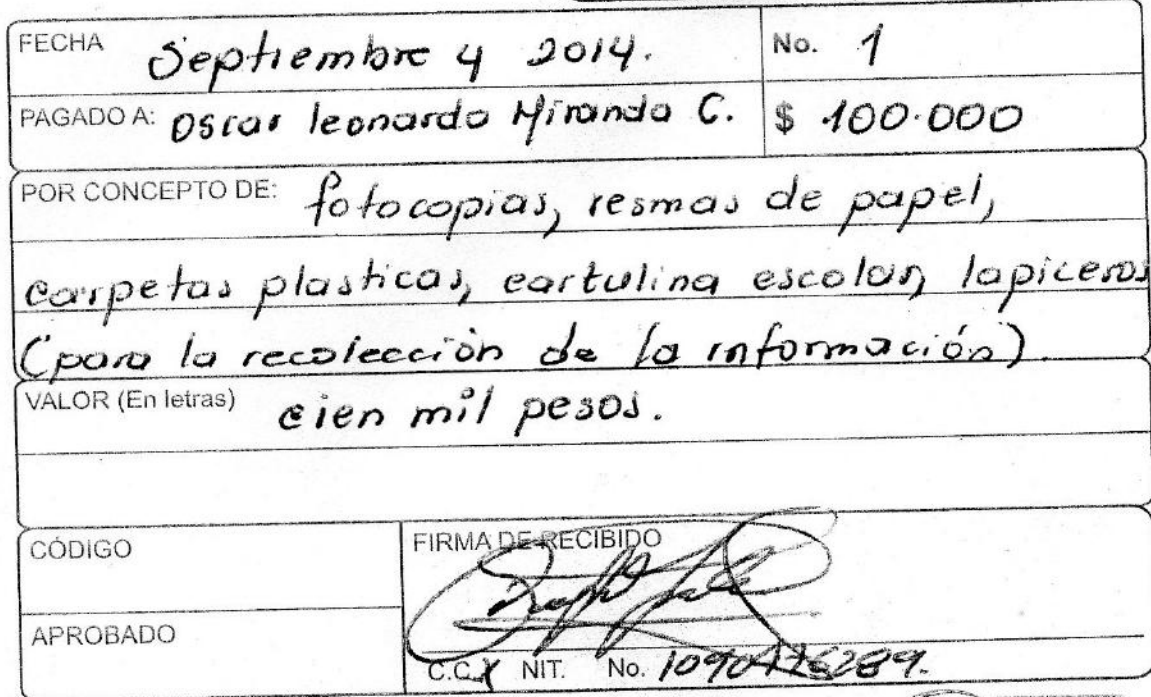 FECHA Septiembre 4 2014. No. 1
PAGADO A: Oscar leonardo Miranda C. $ 100.000
POR CONCEPTO DE: fotocopias, resmas de papel,
carpetas plasticas, cartulina escolar, lapiceros
(para la recolección de la información).
VALOR (En letras) cien mil pesos.
CÓDIGO FIRMA DE RECIBIDO
APROBADO
C.C. X NIT. No.